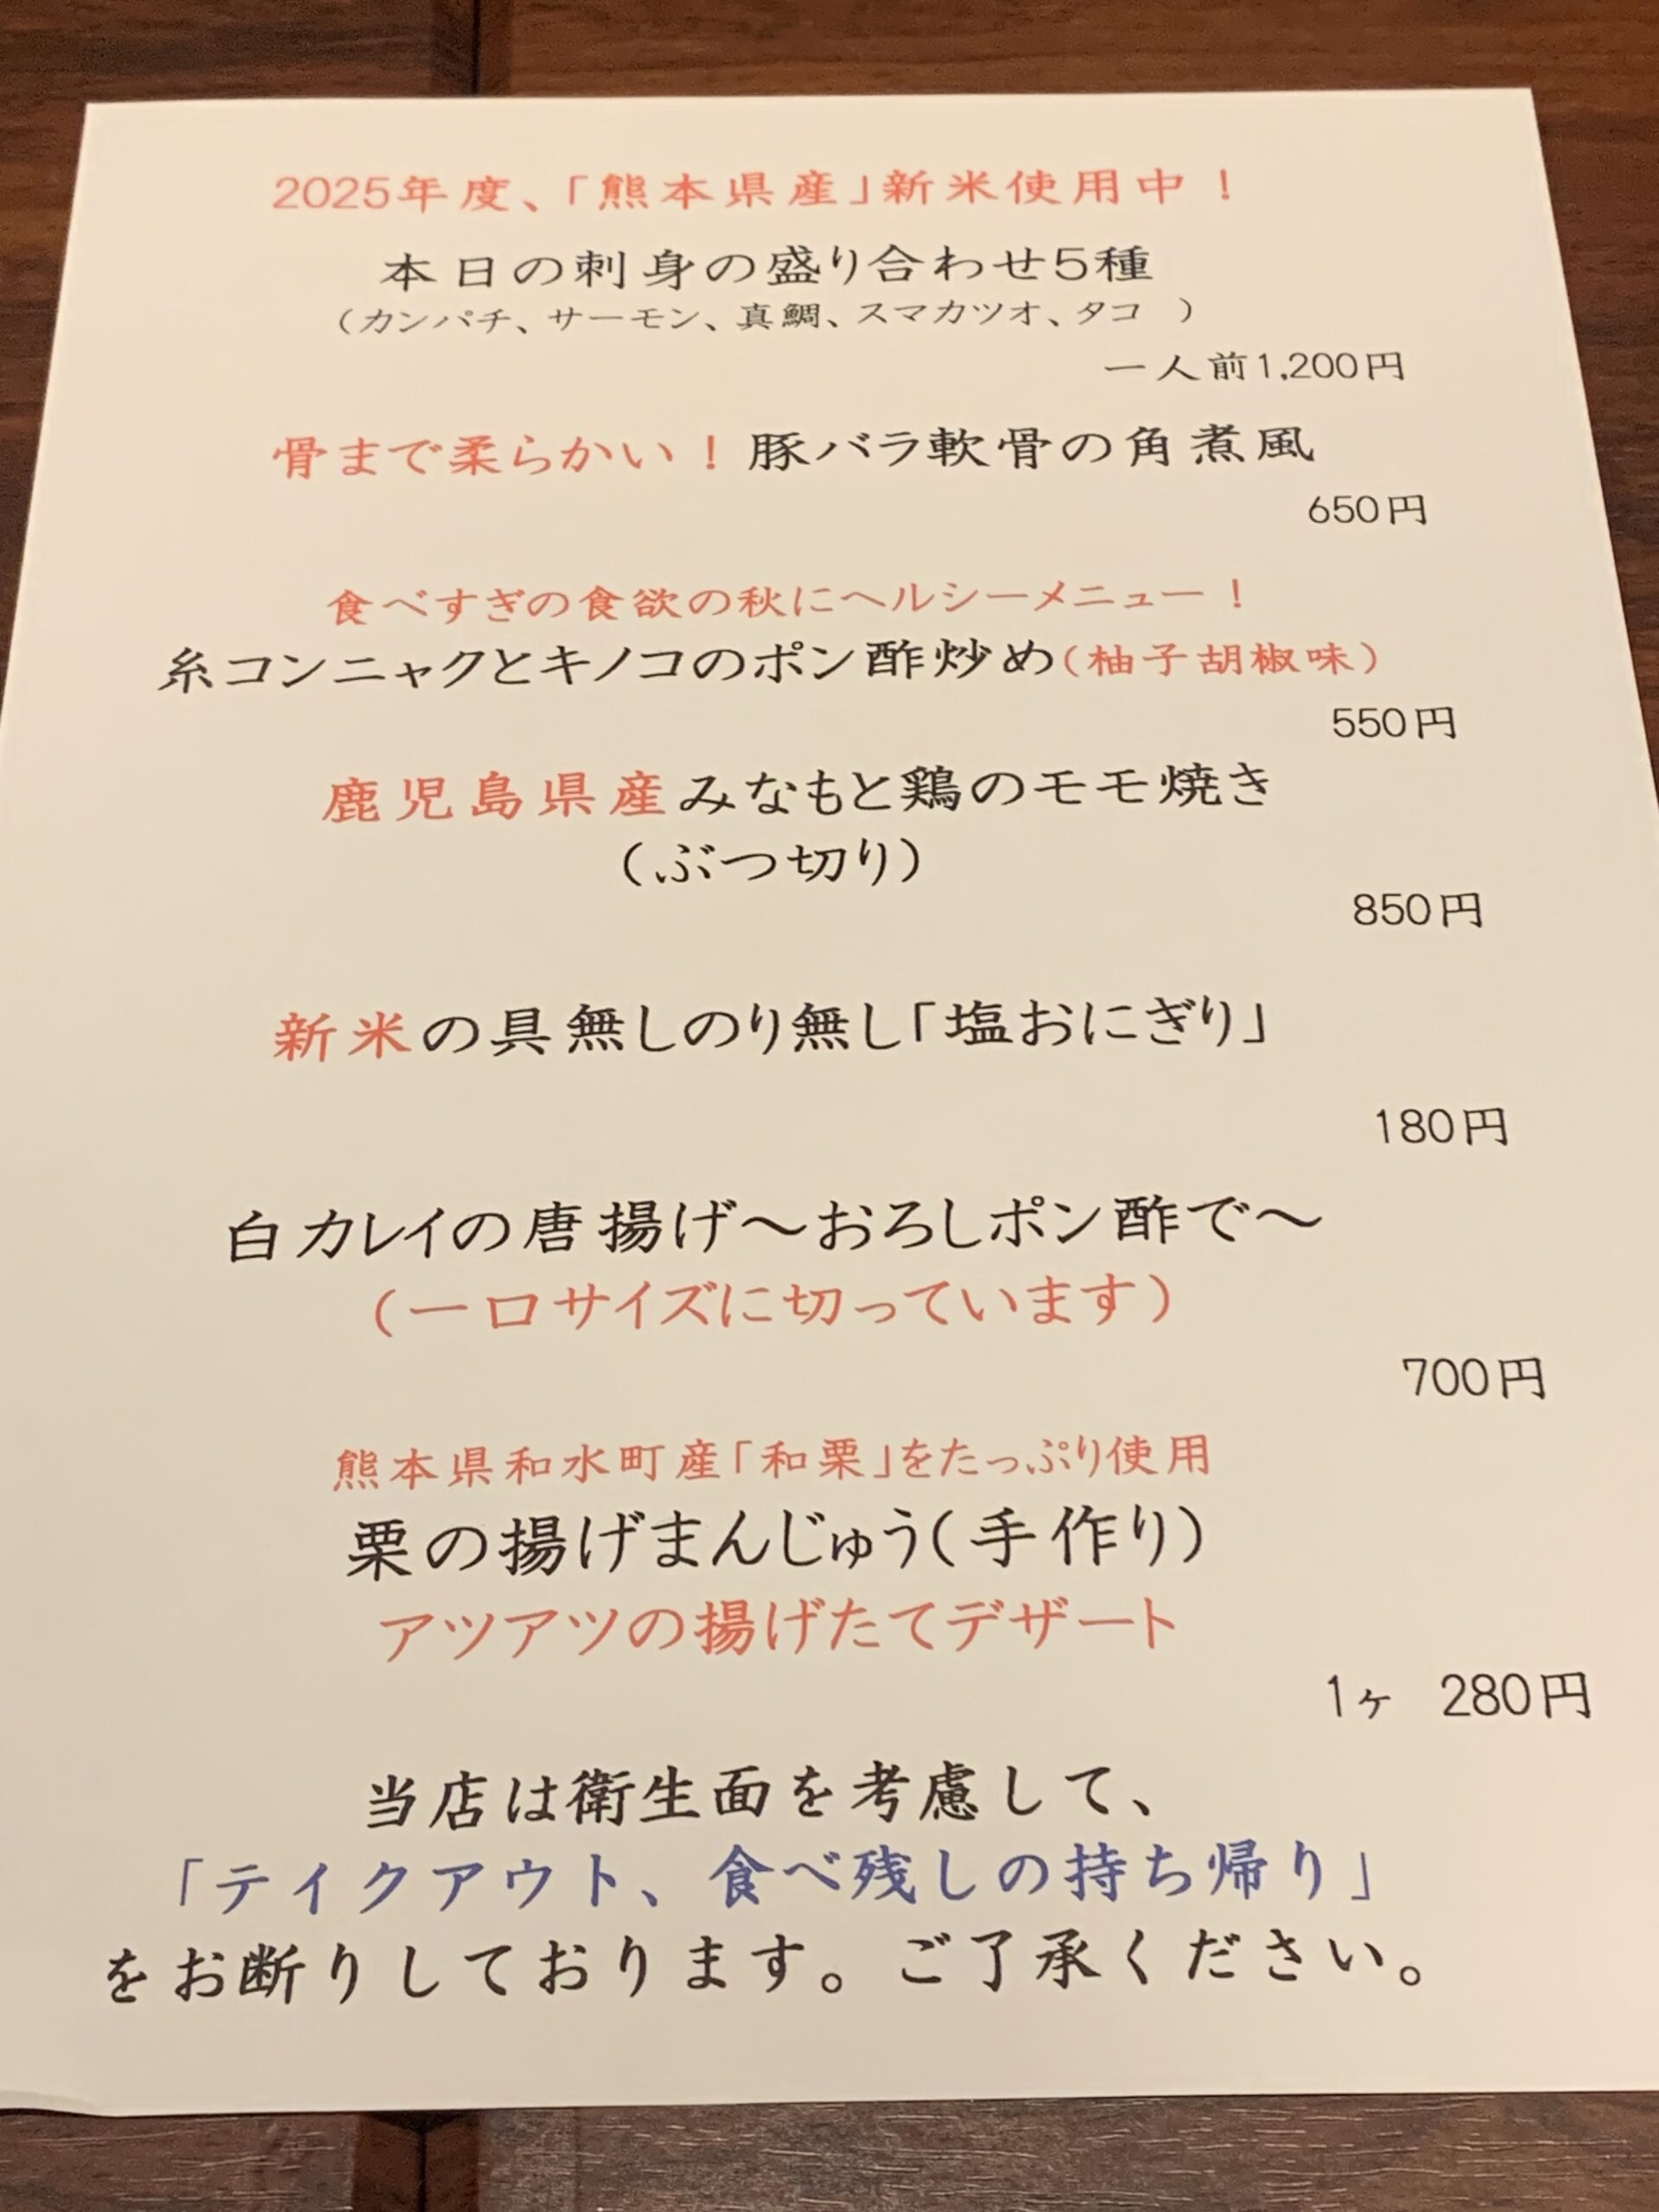 2025年度、「熊本県産」新米使用中！
本日の刺身の盛り合わせ5種
（カンパチ、サーモン、真鯛、スマカツオ、タコ　）
一人前1,200円
骨まで柔らかい！豚バラ軟骨の角煮風
650円
食べすぎの食欲の秋にヘルシーメニュー！
糸コンニャクとキノコのポン酢炒め（柚子胡椒味）
550円
鹿児島県産みなもと鶏のモモ焼き
（ぶつ切り）
850円
新米の具無しのり無し「塩おにぎり」
180円
白カレイの唐揚げ～おろしポン酢で～
（一口サイズに切っています）
700円
熊本県和水町産「和栗」をたっぷり使用
栗の揚げまんじゅう（手作り）
アツアツの揚げたてデザート
1ヶ　280円
当店は衛生面を考慮して、
「テイクアウト、食べ残しの持ち帰り」
をお断りしております。ご了承ください。